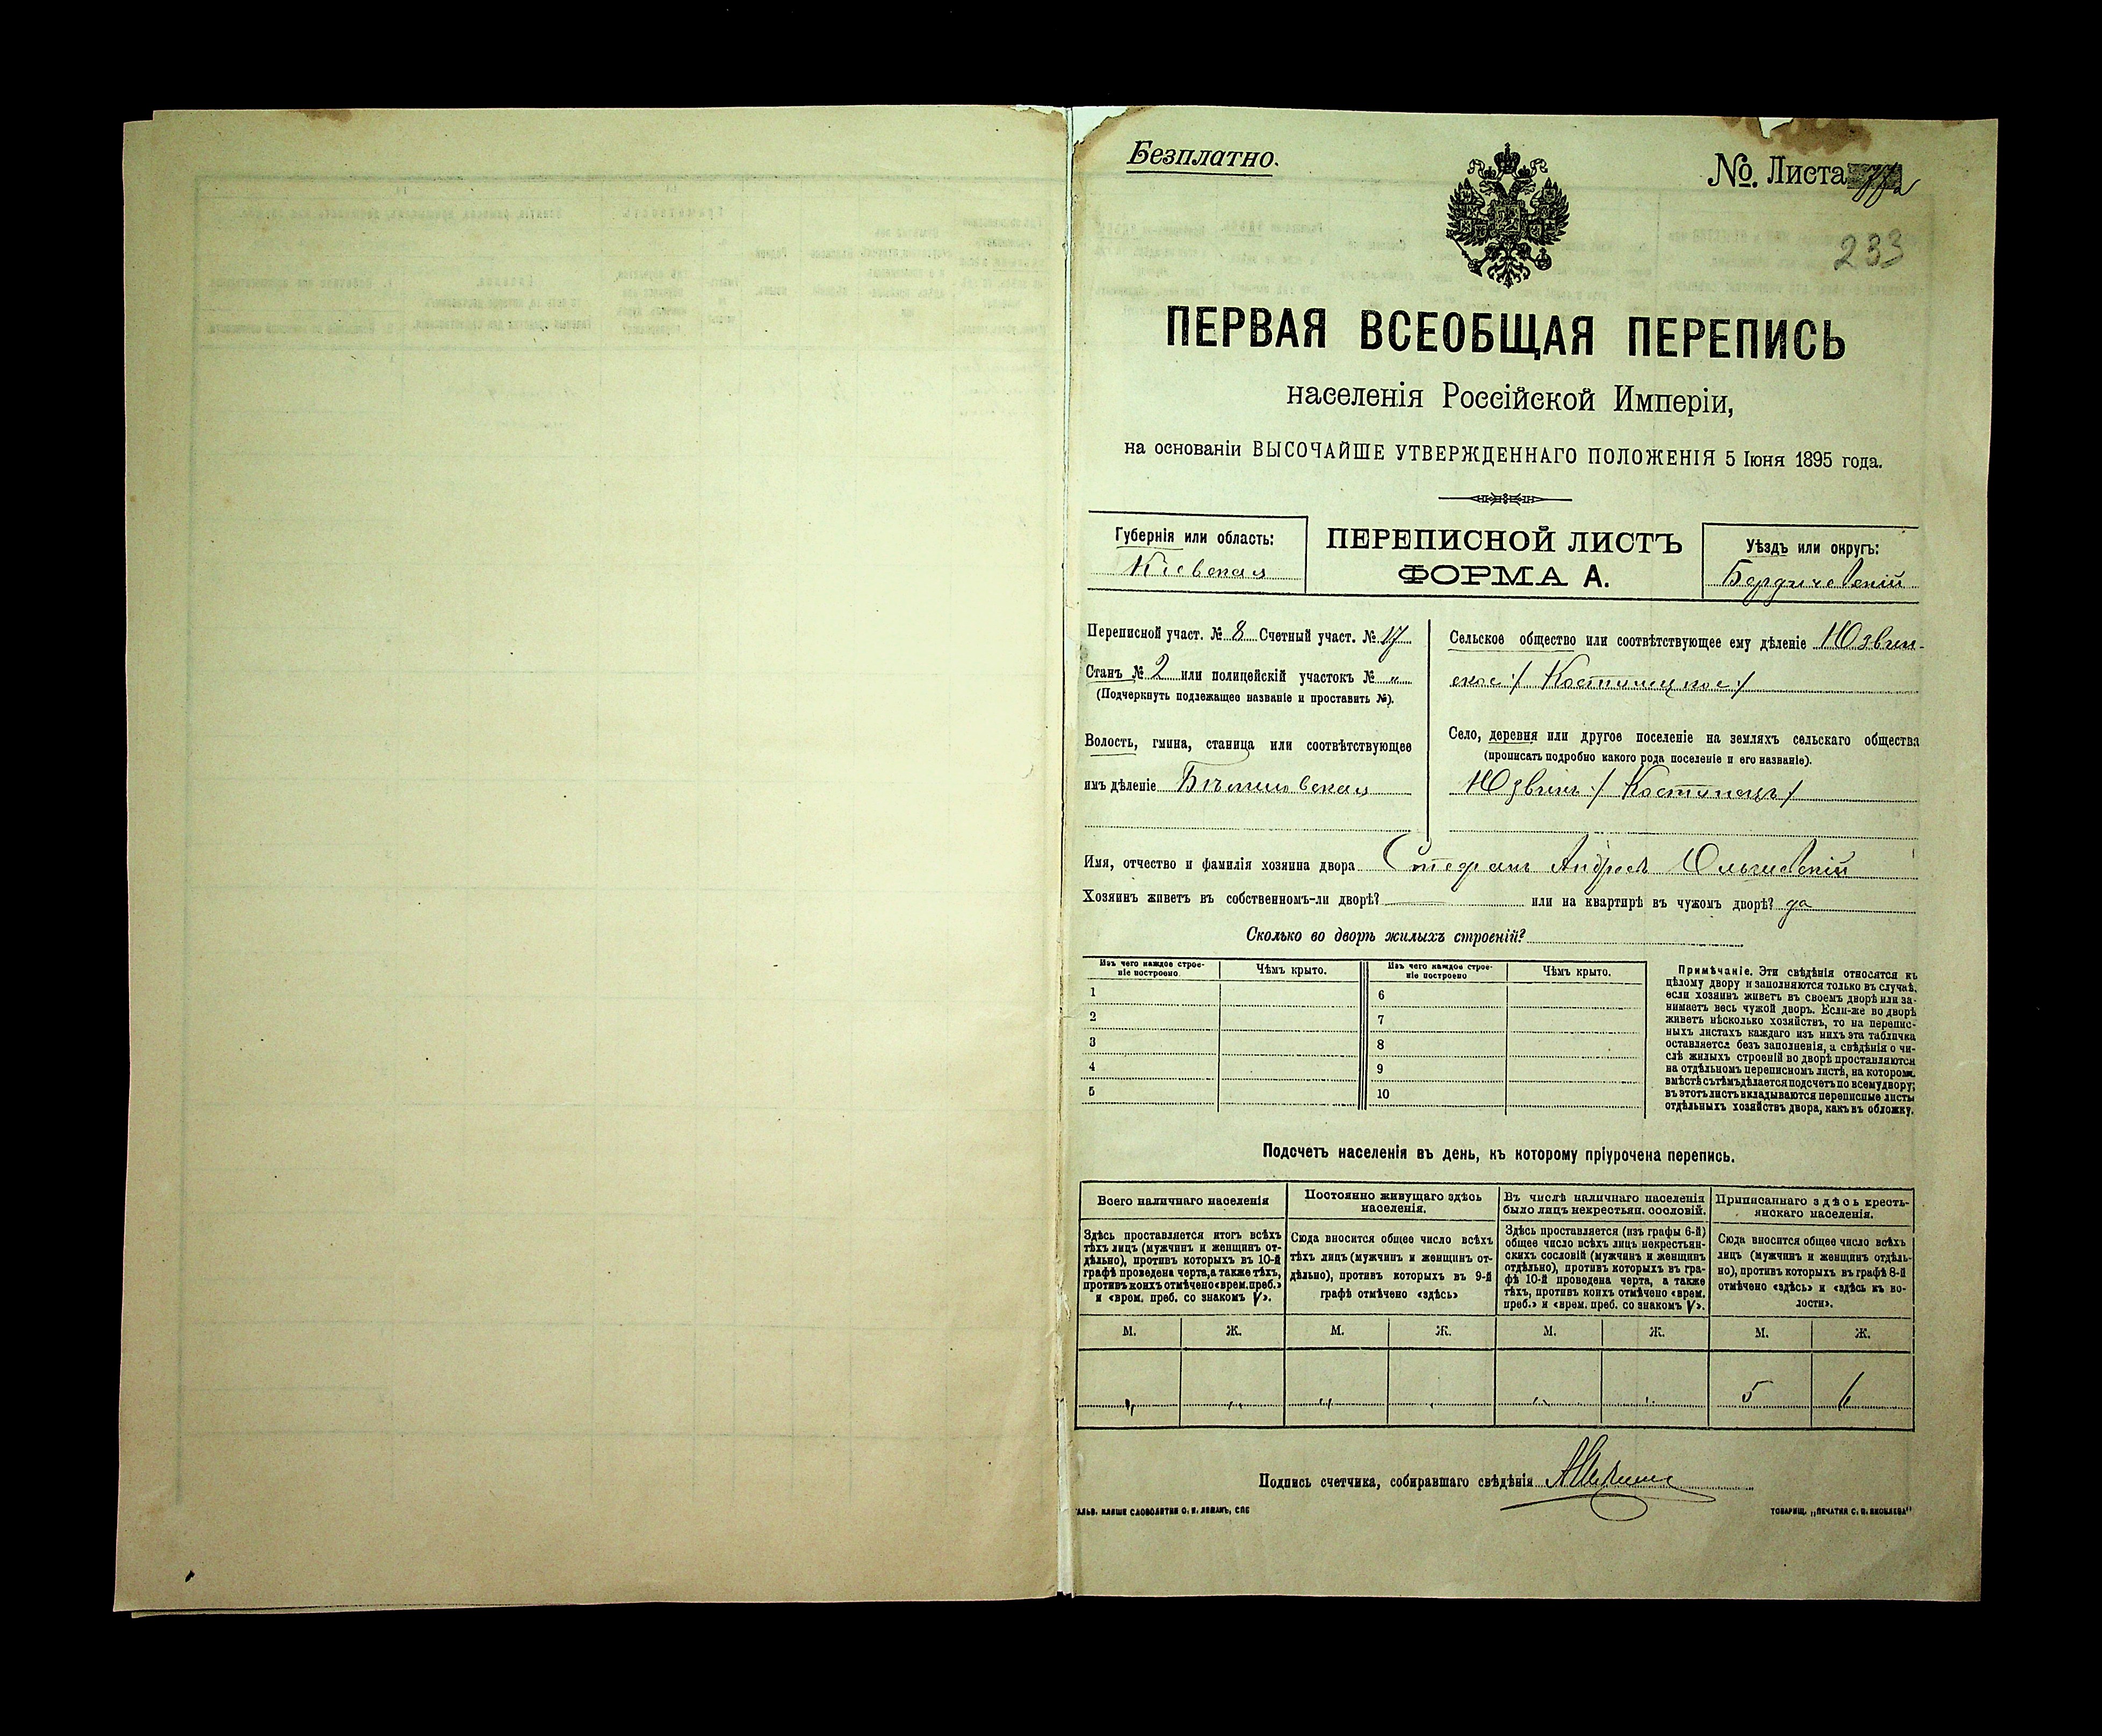 Безплатно.
№ Листа
233
ПЕРВАЯ ВСЕОБЩАЯ ПЕРЕПИСЬ
населенія Россійской Имперіи,
на основаніи ВЫСОЧАЙШЕ УТВЕРЖДЕННАГО ПОЛОЖЕНІЯ 5 Іюня 1895 года.
Губернія или область:
Кіевская
ПЕРЕПИСНОЙ ЛИСТЪ
ФОРМА А.
Уѣздъ или округъ:
Бердичевскій
Переписной участ. № 8 Счетный участ. № 17
Станъ № 2 или полицейскій участокъ № „
(Подчеркнуть подлежащее названіе и проставить №).
Волость, гмина, станица или соотвѣтствующее
имъ дѣленіе Бѣлиловская
Сельское общество или соотвѣтствующее ему дѣленіе Юзвин-
ское /
Село, деревня или другое поселеніе на земляхъ сельскаго общества
(прописать подробно какого рода поселеніе и его названіе).
Юзвинъ / Костинецъ /
Имя, отчество и фамилія хозяина двора Стефанъ Андреевъ Ольшевскій
Хозяинъ живетъ въ собственномъ-ли дворѣ? — или на квартирѣ въ чужомъ дворѣ? да
Сколько во дворѣ жилыхъ строеній?
Изъ чего каждое строе-
ніе построено
Чѣмъ крыто.
Изъ чего каждое строе-
ніе построено
Чѣмъ крыто.
1
2
3
4
5
6
7
8
9
10
Примѣчаніе. Эти свѣдѣнія относятся къ
цѣлому двору и заполняются только въ случаѣ,
если хозяинъ живетъ въ своемъ дворѣ или за-
нимаетъ весь чужой дворъ. Если-же во дворѣ
живетъ нѣсколько хозяйствъ, то на перепис-
ныхъ листахъ каждаго изъ нихъ эта табличка
оставляется безъ заполненія, а свѣдѣнія о чи-
слѣ жилыхъ строеній во дворѣ проставляются
на отдѣльномъ переписномъ листѣ, на которомъ
вмѣстѣ съ тѣмъ дѣлается подсчетъ по всему двору;
въ этотъ листъ вкладываются переписные листы
отдѣльныхъ хозяйствъ двора, какъ въ обложку.
Подсчетъ населенія въ день, къ которому пріурочена перепись.
Всего наличнаго населенія
Здѣсь проставляется итогъ всѣхъ
тѣхъ лицъ (мужчинъ и женщинъ от-
дѣльно), противъ которыхъ въ 10-й
графѣ проведена черта, а также тѣхъ,
противъ коихъ отмѣчено «врем. преб.»
и «врем. преб. со знакомъ V».
Постоянно живущаго здѣсь
населенія.
Сюда вносится общее число всѣхъ
тѣхъ лицъ (мужчинъ и женщинъ от-
дѣльно), противъ которыхъ въ 9-й
графѣ отмѣчено «здѣсь»
Въ числѣ наличнаго населенія
было лицъ некрестьян. сословій.
Здѣсь проставляется (изъ графы 6-й)
общее число всѣхъ лицъ некрестьян-
скихъ сословій (мужчинъ и женщинъ
отдѣльно), противъ которыхъ въ гра-
фѣ 10-й проведена черта, а также
тѣхъ, противъ коихъ отмѣчено «врем.
преб.» и «врем. преб. со знакомъ V».
Приписаннаго здѣсь кресть-
янскаго населенія.
Сюда вносится общее число всѣхъ
лицъ (мужчинъ и женщинъ отдѣль-
но), противъ которыхъ въ графѣ 8-й
отмѣчено «здѣсь» и «здѣсь къ во-
лости».
М. Ж. М. Ж. М. Ж. М. Ж.
„ „ „ „ „ „ 5 6
Подпись счетчика, собиравшаго свѣдѣнія
ГАЛЬВ. КЛИШЕ СЛОВОЛИТНИ О. И. ЛЕМАНЪ, СПБ
ТОВАРИЩ. „ПЕЧАТНЯ С. П. ЯКОВЛЕВА"